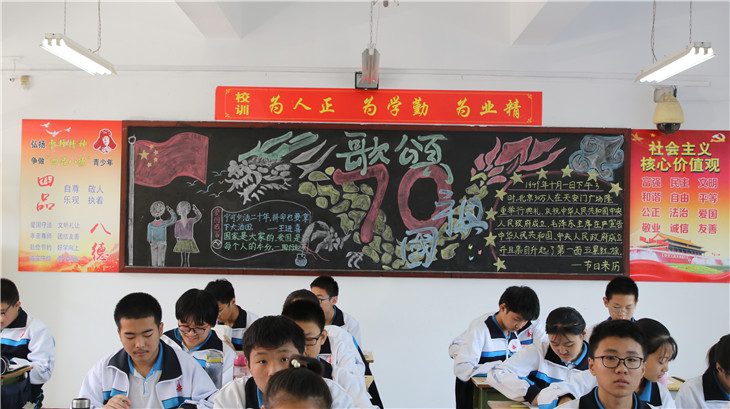 校训 为人正 为学勤 为业精
弘扬
争做
青少年
四品
自尊 敬人
乐观 执着
八德
歌颂
70
祖国
宁可少活二十年,拼命也要拿
下大油田。—王进喜
国家是大家的,爱国是
每个人的本分。—陶行知
1949年十月一日下午3
时,北京30万人在天安门广场隆
重举行典礼,庆祝中华人民共和国中央
人民政府成立,毛泽东主席庄严宣告
中华人民共和国,中央人民政府成立
并且亲自升起了第一面五星红旗
—节日来历
社会主义
核心价值观
富强 民主 文明
和谐 自由 平等
公正 法治 爱国
敬业 诚信 友善